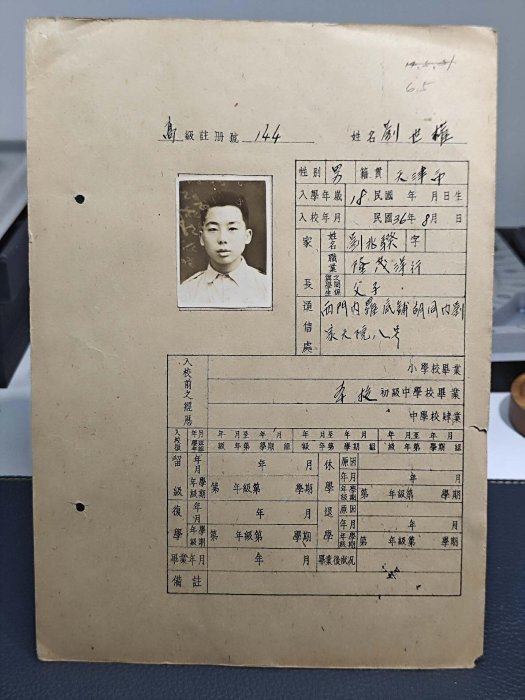 65
高級註册號 144 姓名 劉世權
性別 男 籍貫 天津市
入學年歲 18 民國 年 月 日生
入校年月 民國36年8月 日
家長 姓名 劉兆 字
職業 隆茂洋行
與學生之關係 父子
通信處 西門內羅底鋪胡同內劉
家大院八号
入校前之經歷 小學校畢業
本校 初級中學校畢業
中學校肄業
入校後 年月 年 月至 年 月 年 月至 年 月 年 月至 年 月
級 年第 學期 組 級 年第 學期 組 級 年第 學期 組
留級 年月 年 月 休學 原因
年級學期 第 年級第 學期 年月 年 月
年級學期 第 年級第 學期
復學 年月 年 月 退學 原因
年級學期 第 年級第 學期 年月 年 月
年級學期 第 年級第 學期
畢業年月 年 月 畢業後狀況
備註